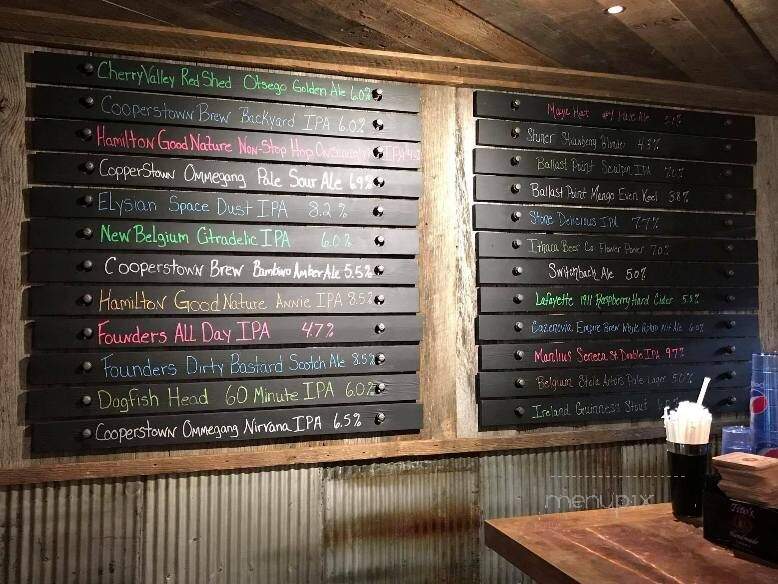 CherryValley Red Shed Otsego Golden Ale 6.0%
Cooperstown Brew Backyard IPA 6.0%
Hamilton Good Nature Non-Stop Hop IPA
CopperStown Ommegang Pale Sour Ale 6.9%
Elysian Space Dust IPA 8.2%
New Belgium Citradelic IPA 6.0%
Cooperstown Brew Bambino Amber Ale 5.5%
Hamilton Good Nature Annie IPA 8.5%
Founders ALL Day IPA 4.7%
Founders Dirty Bastard Scotch Ale 8.5%
Dogfish Head 60 Minute IPA 6.0%
Cooperstown Ommegang Nirvana IPA 6.5%
Magic Hat #9 Ale
Shiner Strawberry Blonde 4.3%
Ballast Point Sculpin IPA 7.0%
Ballast Point Mango Even Keel 3.8%
Stone Delicious IPA 7.7%
Ithaca Beer Co Flower Power 7.0%
Switchback Ale 5.0%
Lafayette 1911 Raspberry Hard Cider 5.5%
Cazenovia Empire Brew White Aphro Ale
Manlius Seneca St Double IPA 9.7%
Belgium Stela Artois Pale Lager 5.0%
Ireland Guinness Stout
menupix
pepsi
Tito's
Handmade